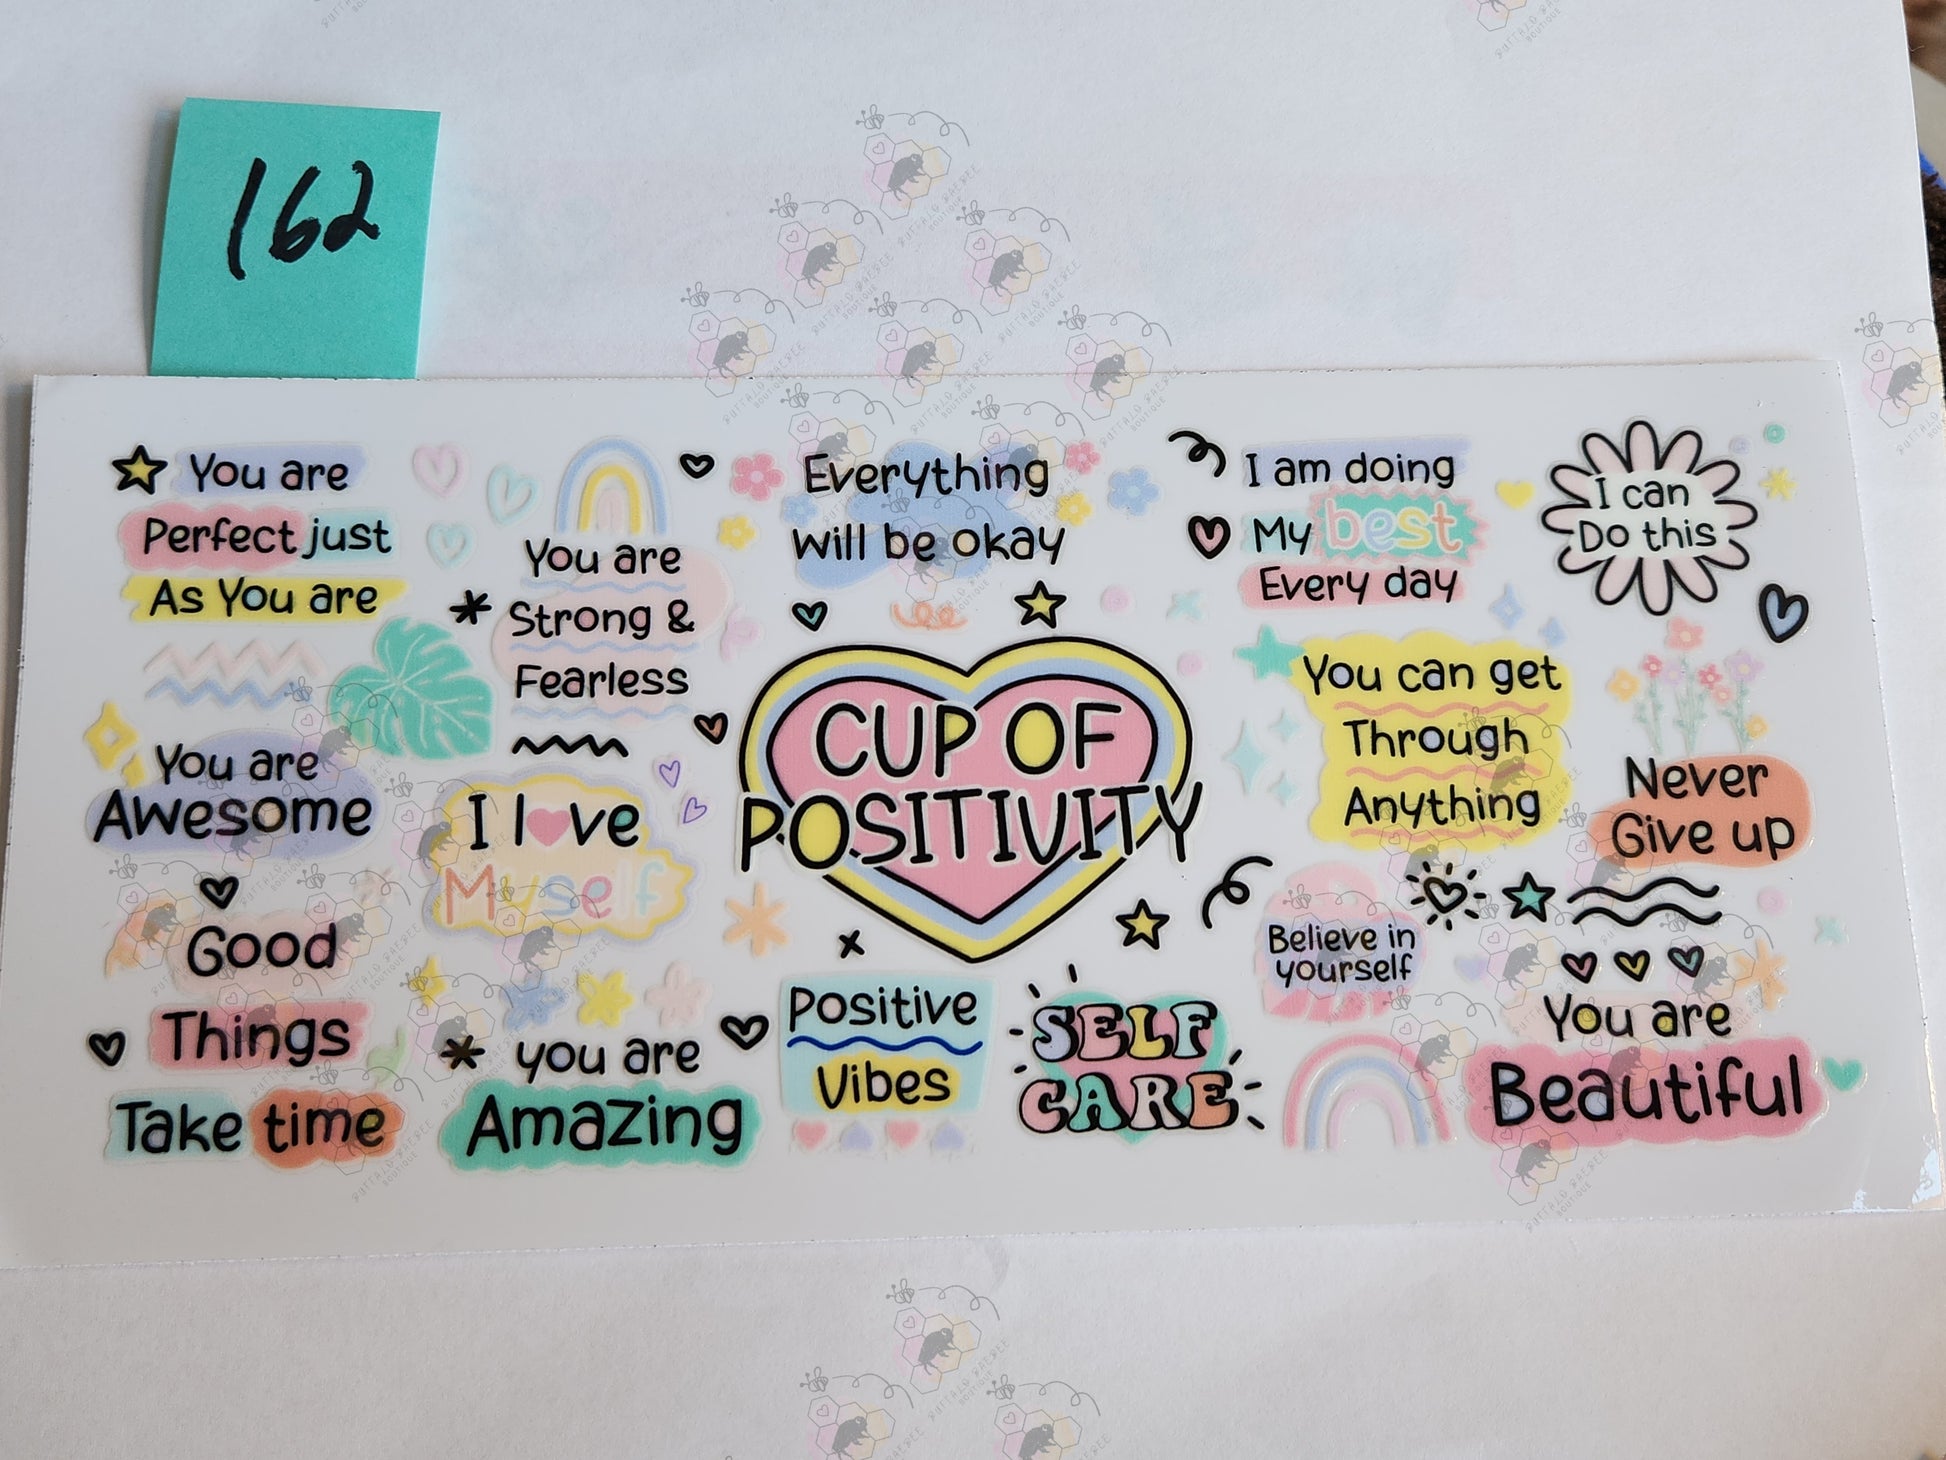 162
You are
Perfect just
As You are
You are
Strong &
Fearless
Everything
Will be okay
I am doing
My best
Every day
I can
Do this
You are
Awesome
I love
Myself
CUP OF
POSITIVITY
You can get
Through
Anything
Never
Give up
Good
Things
Take time
you are
Amazing
Positive
Vibes
SELF
CARE
Believe in
yourself
You are
Beautiful
BUFFALO BAEBEE
BOUTIQUE